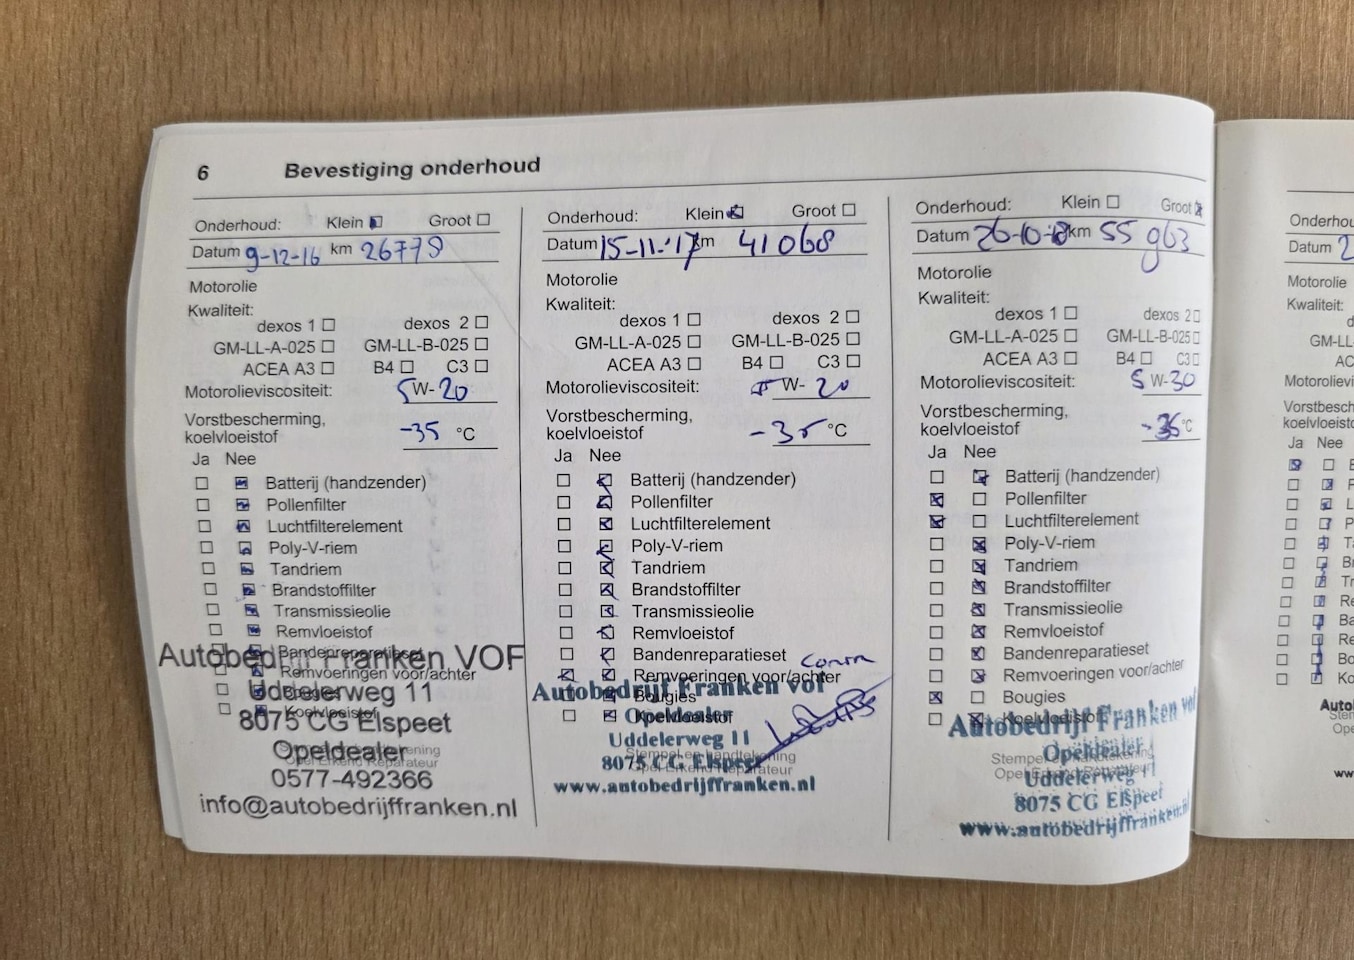 6 Bevestiging onderhoud
Onderhoud: Klein Groot
Datum 9-12-16 km 26778
Motorolie
Kwaliteit:
dexos 1 dexos 2
GM-LL-A-025 GM-LL-B-025
ACEA A3 B4 C3
Motorolieviscositeit: 5W-20
Vorstbescherming,
koelvloeistof -35 °C
Ja Nee
Batterij (handzender)
Pollenfilter
Luchtfilterelement
Poly-V-riem
Tandriem
Brandstoffilter
Transmissieolie
Remvloeistof
Bandenreparatieset
Remvoeringen voor/achter
Bougies
Koelvloeistof
Autobedrijf Franken VOF
Uddelerweg 11
8075 CG Elspeet
Opeldealer
0577-492366
info@autobedrijffranken.nl
Opel Erkend Reparateur
Onderhoud: Klein Groot
Datum 15-11-'17 km 41068
Motorolie
Kwaliteit:
dexos 1 dexos 2
GM-LL-A-025 GM-LL-B-025
ACEA A3 B4 C3
Motorolieviscositeit: 5 W-20
Vorstbescherming,
koelvloeistof -35 °C
Ja Nee
Batterij (handzender)
Pollenfilter
Luchtfilterelement
Poly-V-riem
Tandriem
Brandstoffilter
Transmissieolie
Remvloeistof
Bandenreparatieset
Remvoeringen voor/achter
Bougies
Koelvloeistof
Autobedrijf Franken vof
Opeldealer
Uddelerweg 11
8075 CG Elspeet
www.autobedrijffranken.nl
Stempel en handtekening
Onderhoud: Klein Groot
Datum 26-10-18 km 55963
Motorolie
Kwaliteit:
dexos 1 dexos 2
GM-LL-A-025 GM-LL-B-025
ACEA A3 B4 C3
Motorolieviscositeit: 5 W-30
Vorstbescherming,
koelvloeistof °C
Ja Nee
Batterij (handzender)
Pollenfilter
Luchtfilterelement
Poly-V-riem
Tandriem
Brandstoffilter
Transmissieolie
Remvloeistof
Bandenreparatieset
Remvoeringen voor/achter
Bougies
Koelvloeistof
Autobedrijf Franken vof
Opeldealer
Uddelerweg 11
8075 CG Elspeet
www.autobedrijffranken.nl
Datum 2
Motorolie
Kwaliteit:
Ja Nee